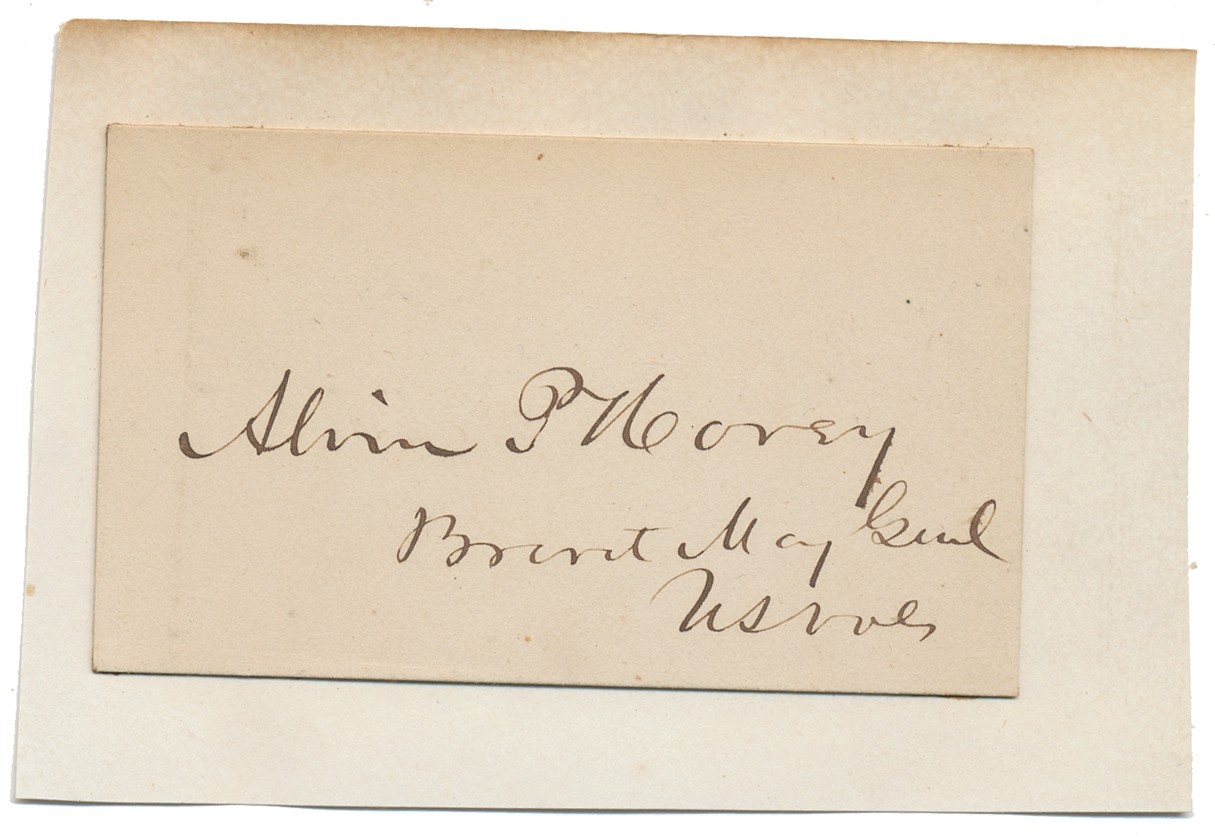 Alvin P Hovey
Brevet Maj Genl
US Vols